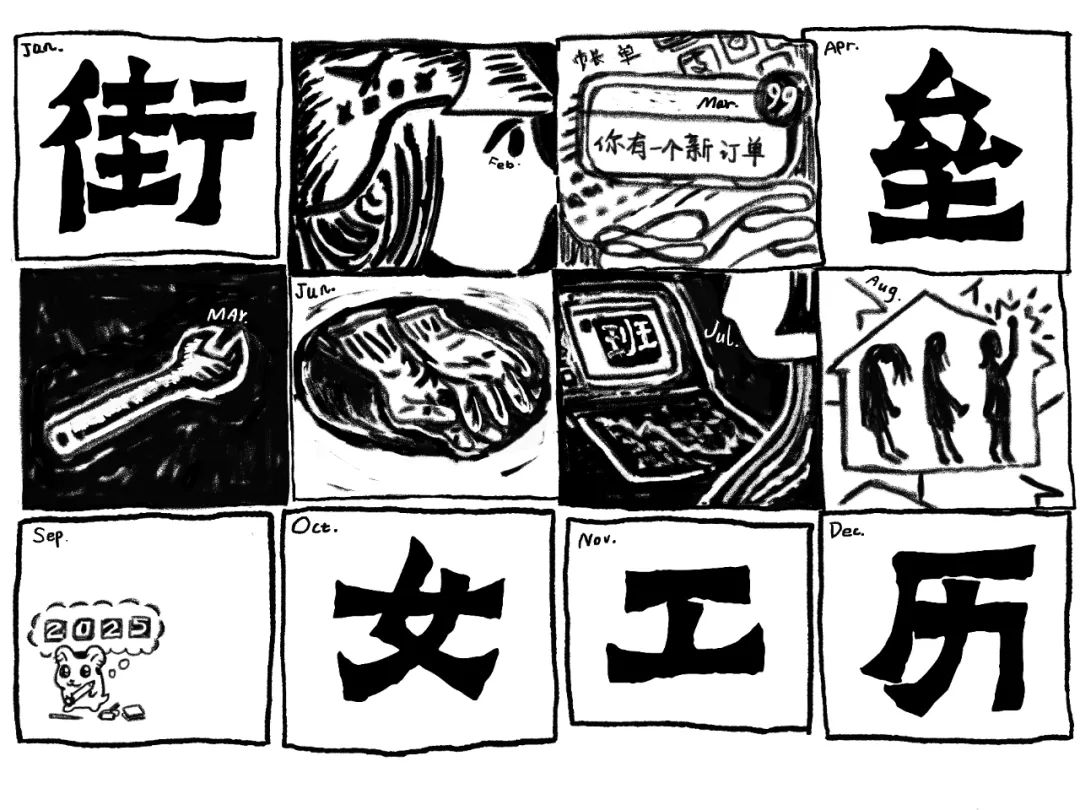 Jan.
街
Feb.
帐单
Mar.
99+
你有一个新订单
Apr.
垒
MAY.
Jun.
Jul.
Aug.
Sep.
2025
Oct.
女
Nov.
工
Dec.
历